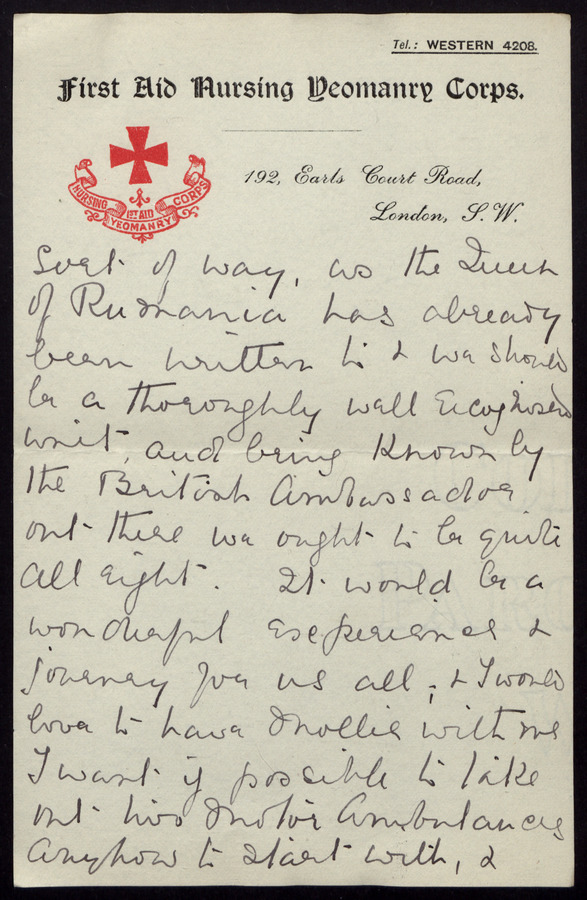 Tel.: WESTERN 4208.
First Aid Nursing Yeomanry Corps.
192, Earls Court Road,
London, S.W.
NURSING 1ST AID YEOMANRY CORPS
Sort of way, as the Queen
of Rumania has already
been written to & we should
be a thoroughly well recognised
unit, and being known by
the British Ambassador
out there we ought to be quite
all right. It would be a
wonderful experience &
journey for us all, & I would
love to have Mollie with me
I want if possible to take
out two Motor Ambulances
anyhow to start with, &